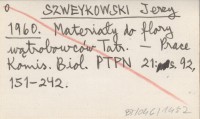 SZWEYKOWSKI Jerzy
1960. Materiały do flory
wątrobowców Tatr. — Prace
Komis. Biol. PTPN 21: 92,
151-242.